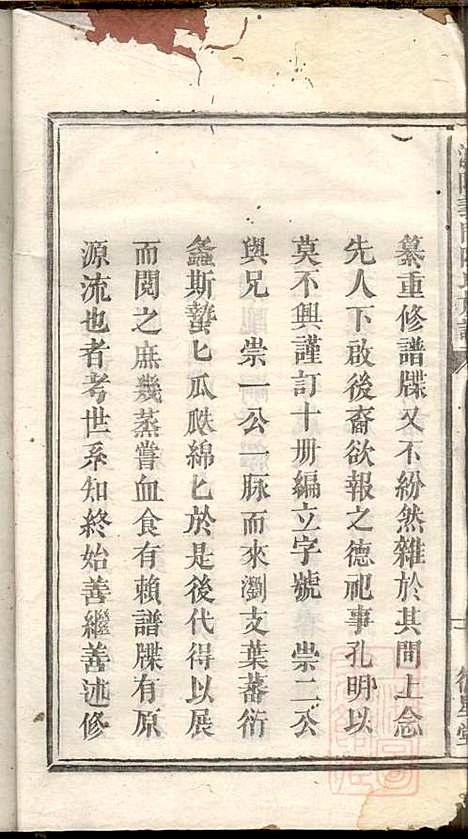 纂重修譜牒又不紛然雜於其間上念
先人下啟後裔欲報之德祀事孔明以
莫不興謹訂十册編立字號 崇二公
與兄 崇一公一脉而來瀏支葉蕃衍
螽斯蟄匕瓜瓞綿匕於是後代得以展
而閱之庶幾蒸嘗血食有賴譜牒有原
源流也者考世系知終始善繼善述修